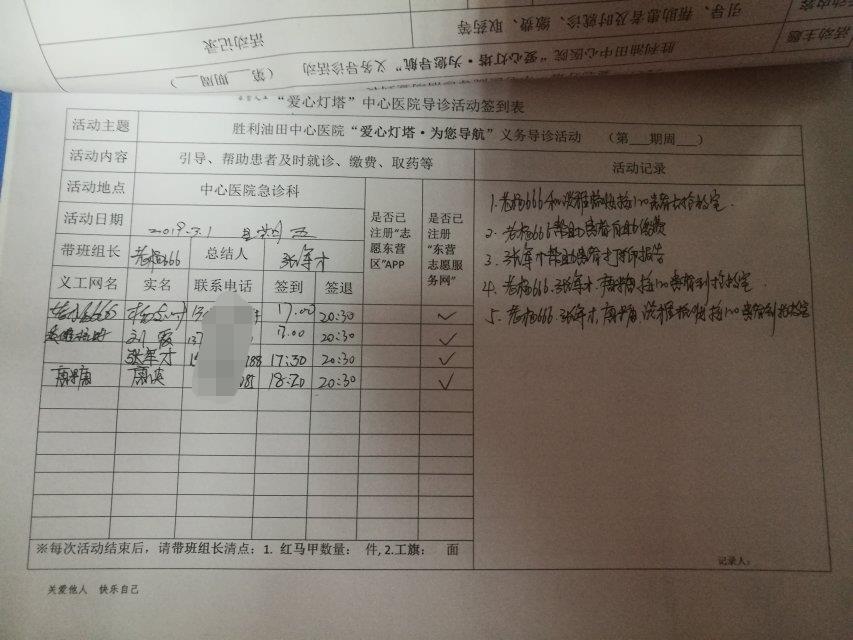 活动记录
活动主题
胜利油田中心医院“爱心灯塔·为您导航”义务导诊活动 (第 期周 )
引导、帮助患者及时就诊、缴费、取药等
“爱心灯塔”中心医院导诊活动签到表
活动主题 胜利油田中心医院“爱心灯塔·为您导航”义务导诊活动 (第 期周 )
活动内容 引导、帮助患者及时就诊、缴费、取药等 活动记录
活动地点 中心医院急诊科
活动日期 2019.3.1 星期五
是否已注册“志愿东营区”APP
是否已注册“东营志愿服务网”
带班组长 老杨666 总结人 张军才
义工网名 实名 联系电话 签到 签退
老杨666 17.00 20:30 ✓
刘霞 137 17.00 20:30 ✓
张军才 188 17:30 20:30 ✓
18:20 20:30 ✓
1. 老杨666和 120患者去抢救室.
2. 老杨666帮助患者自助缴费
3. 张军才帮助患者打印报告
4. 老杨666.张军才. 120患者到抢救室.
5. 老杨666.张军才. 120患者到抢救室
※每次活动结束后,请带班组长清点:1. 红马甲数量: 件,2.工旗: 面
记录人:
关爱他人 快乐自己